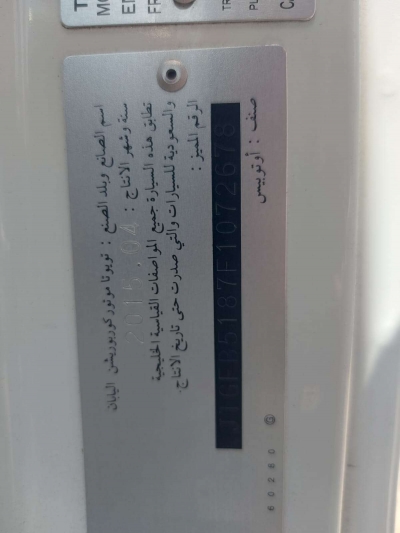 T
MO
EN
FR
TR
PL
CA
اسم الصانع وبلد الصنع : تويوتا موتور كوربوريشن اليابان
سنة وشهر الانتاج : 2015.04
تطابق هذه السيارة جميع المواصفات القياسية الخليجية
والسعودية للسيارات والتي صدرت حتى تاريخ الانتاج.
الرقم المميز :
JTGFB5187F1072678
صنف : أوتوبيس
60280